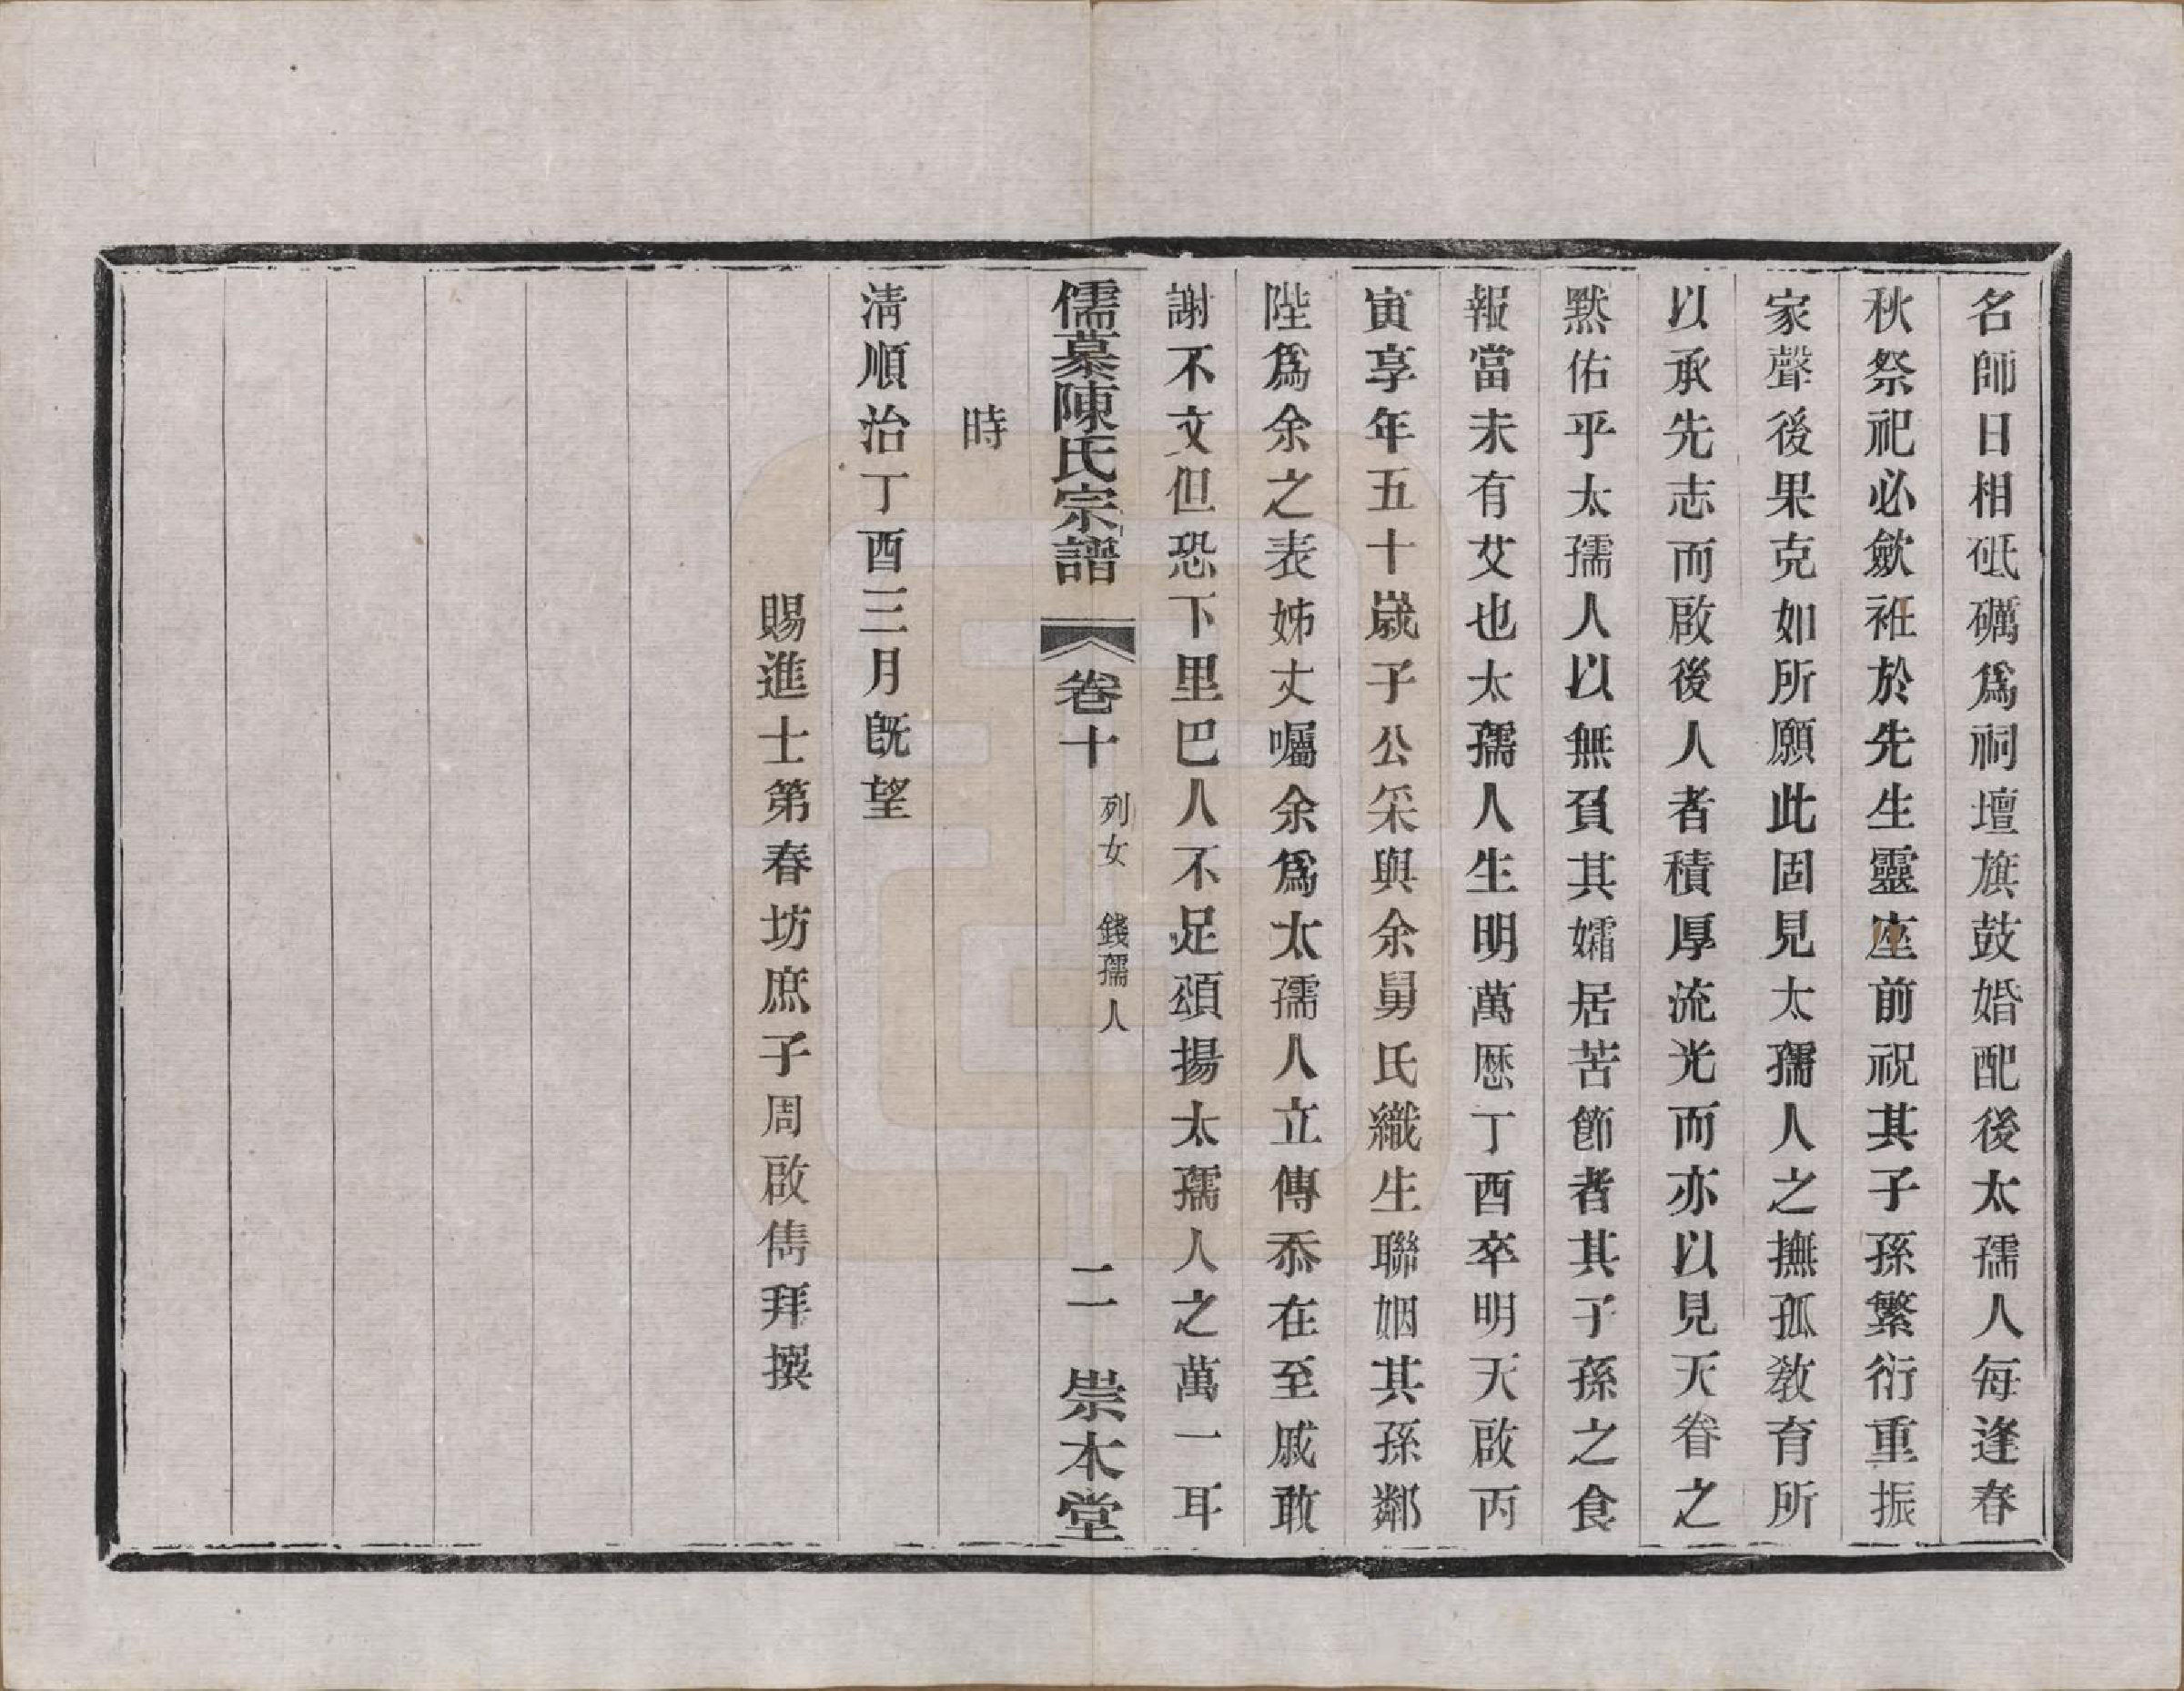 名師日相砥礪爲祠壇旗鼓婚配後太孺人每逢春
秋祭祀必歛袵於先生靈座前祝其子孫繁衍重振
家聲後果克如所願此固見太孺人之撫孤敎育所
以承先志而啟後人者積厚流光而亦以見天眷之
黙佑乎太孺人以無負其孀居苦節者其子孫之食
報當未有艾也太孺人生明萬厯丁酉卒明天啟丙
寅享年五十歲子公采與余舅氏織生聯姻其孫鄰
陛爲余之表姊丈囑余爲太孺人立傳忝在至戚敢
謝不文但恐下里巴人不足頌揚太孺人之萬一耳
儒慕陳氏宗譜 卷十 列女 錢孺人 二 崇本堂
時
淸順治丁酉三月旣望
賜進士第春坊庶子周啟儁拜撰